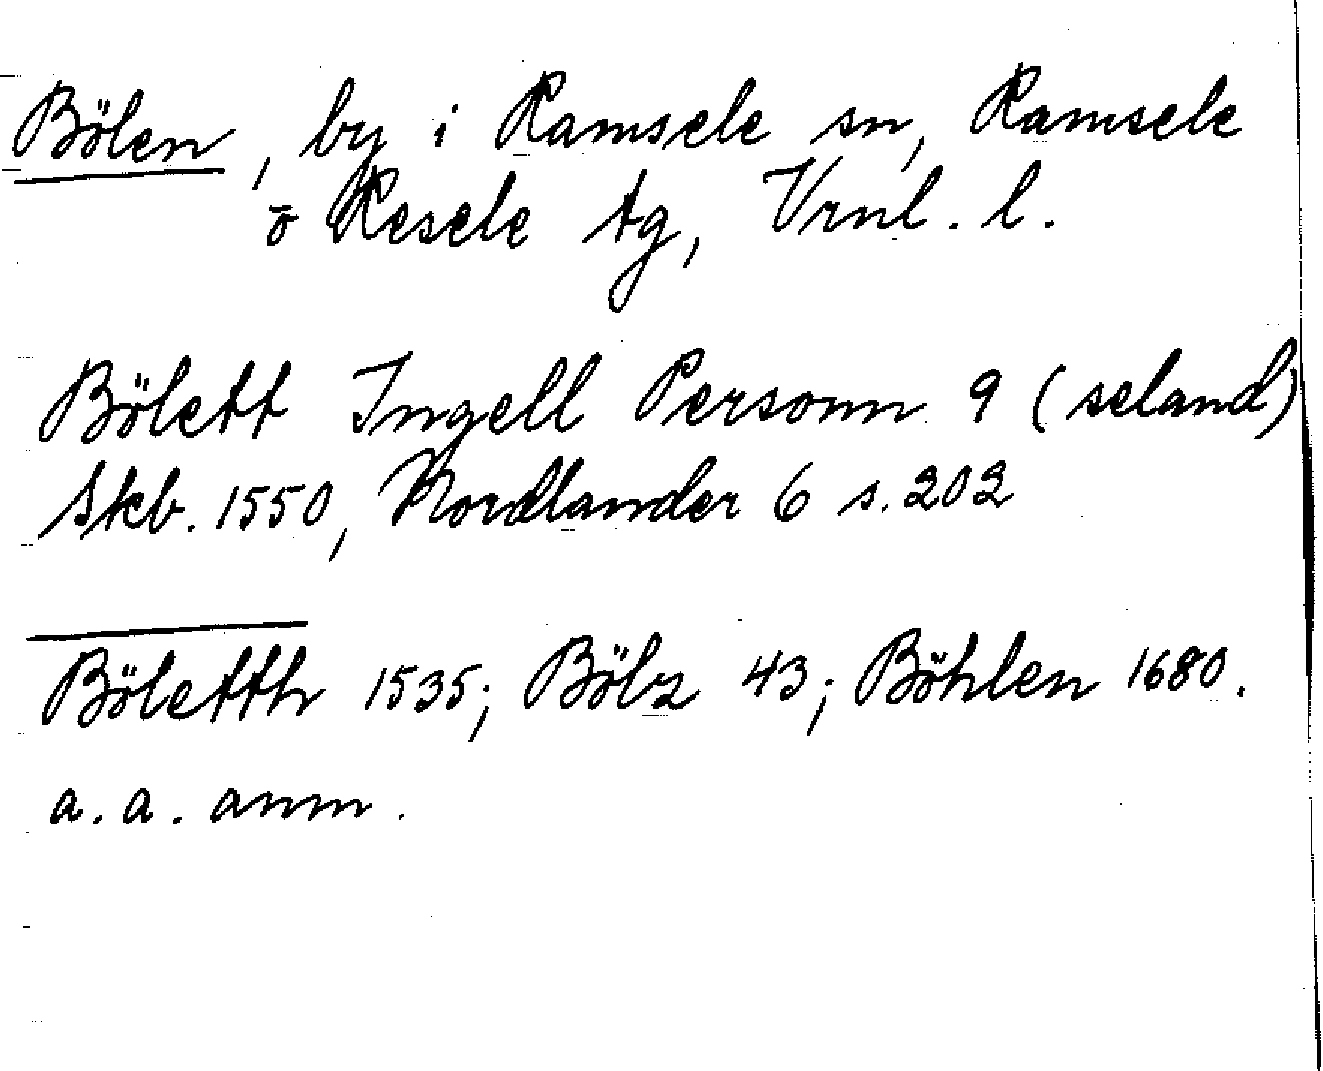 Bölen, by i Ramsele sn, Ramsele
o Resele tg, Vrnl. l.
Bölett Ingell Personn 9 (seland)
Skb. 1550, Nordlander 6 s. 202
Böletth 1535; Bölz 43; Böhlen 1680.
a. a. anm.